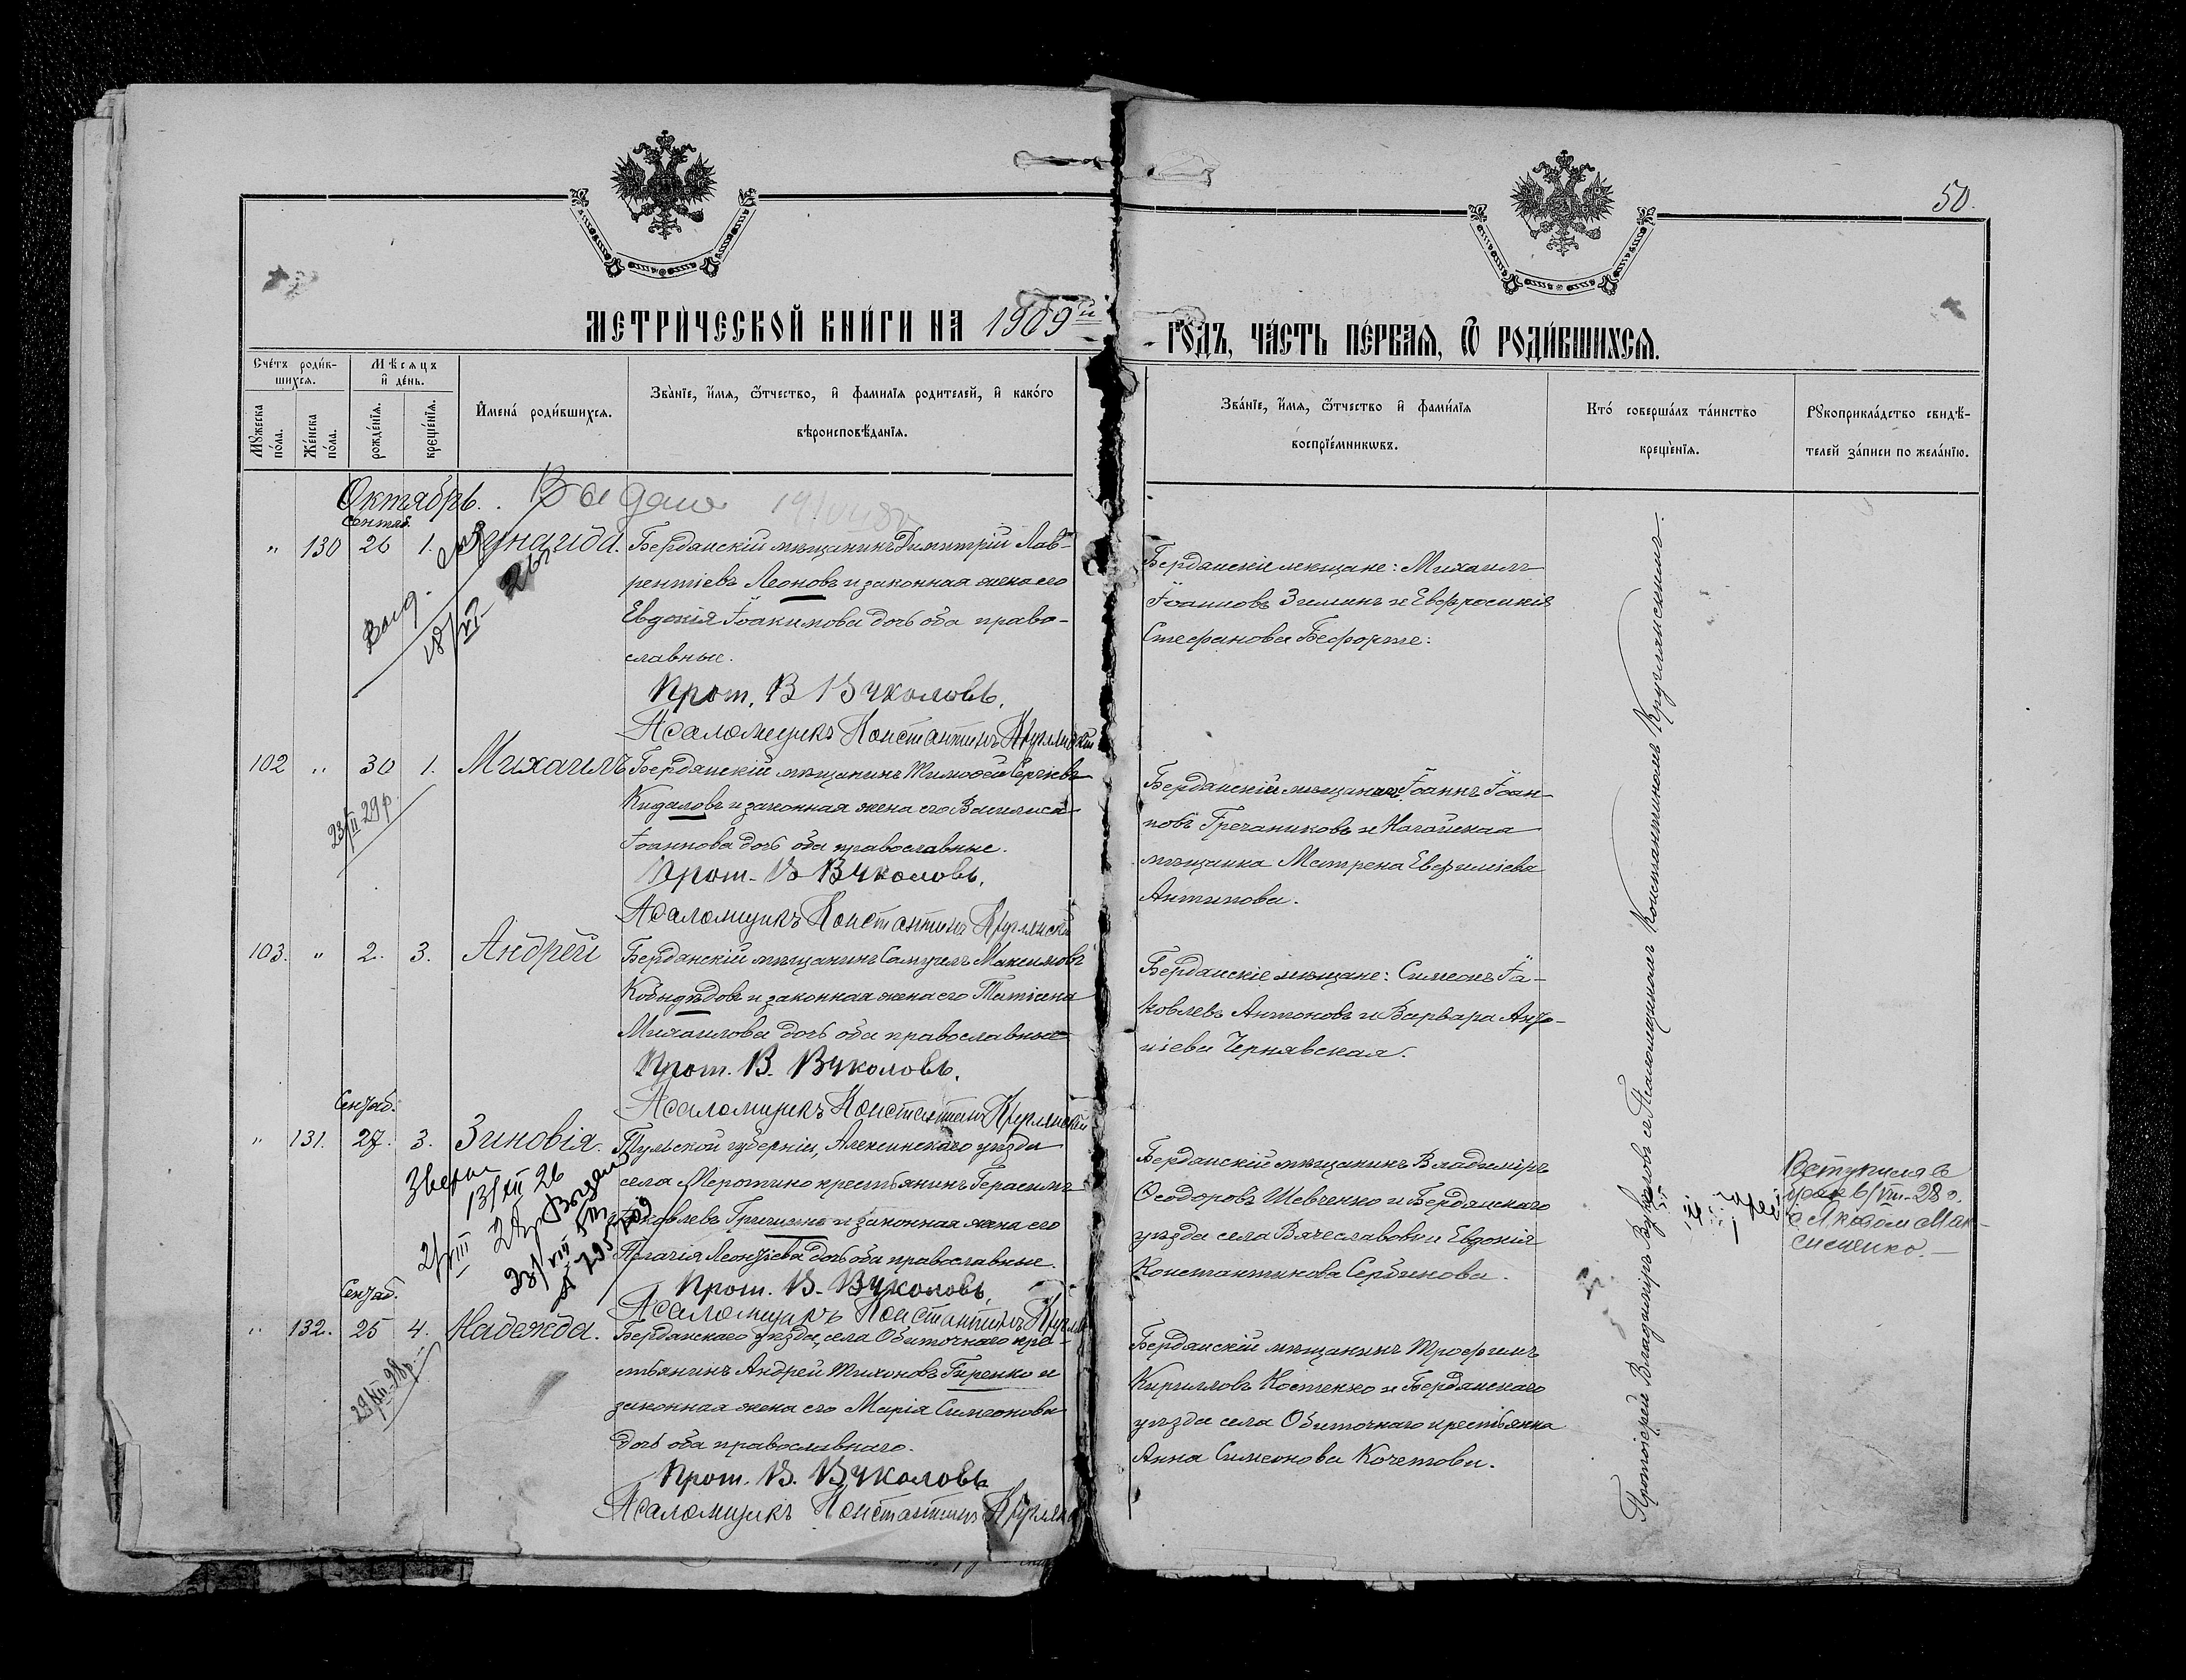 50.
МЕТРИЧЕСКОЙ КНИГИ НА 1909й ГОДЪ, ЧАСТЬ ПЕРВАЯ, Ѡ РОДИВШИХСЯ.
Счетъ родив-
шихся.
Мѣсяцъ
и день.
Мужеска
пола.
Женска
пола.
рожденія.
крещенія.
Имена родившихся.
Званіе, имя, ѿчество, и фамилія родителей, и какого
вѣроисповѣданія.
Званіе, имя, ѿчество и фамилія
воспріемникѡвъ.
Кто совершалъ таинство
крещенія.
Рукоприкладство свидѣ-
телей записи по желанію.
Октябрь. Выдано
Сентяб.
" 130 26 1. Зинаида.
Бердянскій мѣщанинъ Димитрій Лав-
рентіевъ Леоновъ и законная жена его
Евдокія Іоакимова дочь оба право-
славные.
Прот. В Вуколовъ.
Псаломщикъ Константинъ Круглянскій
Выд.
18/VI
Бердянскіе мѣщане: Михаилъ
Іоанновъ Зиминъ и Евфросинія
Стефанова Бефорте:
102 " 30 1. Михаилъ
Бердянскій мѣщанинъ Тимофей Сергіевъ
Кидаловъ и законная жена его Василиса
Іоаннова дочь оба православные.
Прот. В Вуколовъ.
Псаломщикъ Константинъ Круглянскій
23/II 29 р.
Бердянскій мѣщанинъ Іоаннъ Іоан-
новъ Гречаниковъ и Ногайская
мѣщанка Матрена Евфиміева
Антипова.
103. " 2. 3. Андрей
Бердянскій мѣщанинъ Самуилъ Максимовъ
Кобыдѣдовъ и законная жена его Татіана
Михаилова дочь оба православные
Прот. В. Вуколовъ.
Псаломщикъ Константинъ Круглянскій
Бердянскіе мѣщане: Симеонъ Іа-
ковлевъ Антоновъ и Варвара Анто-
ніева Чернявская.
Сентяб.
" 131. 27. 3. Зиновія.
Тульской губерніи, Алексинскаго уѣзда
села Меротино крестьянинъ Герасимъ
Іаковлевъ Гричинъ и законная жена его
Пелагія Леонтьева дочь оба православные.
Прот. В. Вуколовъ.
Псаломщикъ Константинъ Кругля
13/XII 26
Выдано
Бердянскій мѣщанинъ Владиміръ
Ѳеодоровъ Шевченко и Бердянскаго
уѣзда села Вячеславовки Евдокія
Константинова Сербинова.
Вступила в
брак 6/VIII-28 г.
с Максименко.
Сентяб.
" 132. 25 4. Надежда.
Бердянскаго уѣзда, села Обиточнаго кре-
стьянинъ Андрей Тихоновъ Гиренко и
законная жена его Марія Симеонова
дочь оба православнаго.
Прот. В. Вуколовъ
Псаломщикъ Константинъ Кругля
29/XII-28р.
Бердянскій мѣщанинъ Трофимъ
Кирилловъ Костенко и Бердянскаго
уѣзда села Обиточнаго крестьянка
Анна Симеонова Кочетова.
Протоіерей Владиміръ Вуколовъ съ Псаломщикомъ Константиномъ Круглянскимъ.